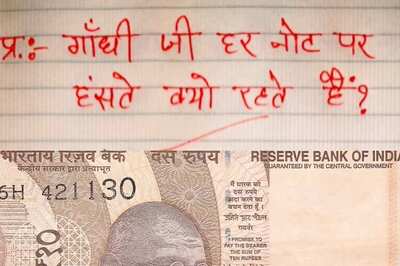 प्र.:- गाँधी जी हर नोट पर
हंसते क्यो रहते हैं?
भारतीय रिज़र्व बैंक
केन्द्रीय सरकार द्वारा प्रत्याभूत
दस रुपये
RESERVE BANK OF INDIA
GUARANTEED BY THE CENTRAL GOVERNMENT
6H 421130
मैं धारक को
दस रुपये
अदा करने का
वचन देता हूँ।
गवर्नर
I PROMISE TO
PAY THE BEARER
THE SUM OF
TEN RUPEES
₹10